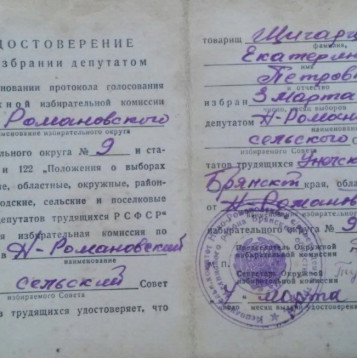 ДОСТОВЕРЕНИЕ
избрании депутатом
новании протокола голосования
ной избирательной комиссии
Романовского
наименование избирательного округа
льного округа № 9 и ста-
и 122 „Положения о выборах
ие, областные, окружные, район-
родские, сельские и поселковые
депутатов трудящихся РСФСР“
я избирательная комиссия по
в Н-Романовский
наименование
сельский Совет
избираемого Совета
в трудящихся удостоверяет, что
товарищ
фамилия,
Екатерин
имя
Петров
отчество
избран 3 марта
число, месяц выборов
депутатом Н-Роман
сельского С
избираемого Совета
татов трудящихся
Брянск край, обла
от Н-Романов
избирательного округа № 9
Председатель Окружной
избирательной комиссии
М. П.
Секретарь Окружной
избирательной комиссии
4 марта
число месяц выдачи удостоверения